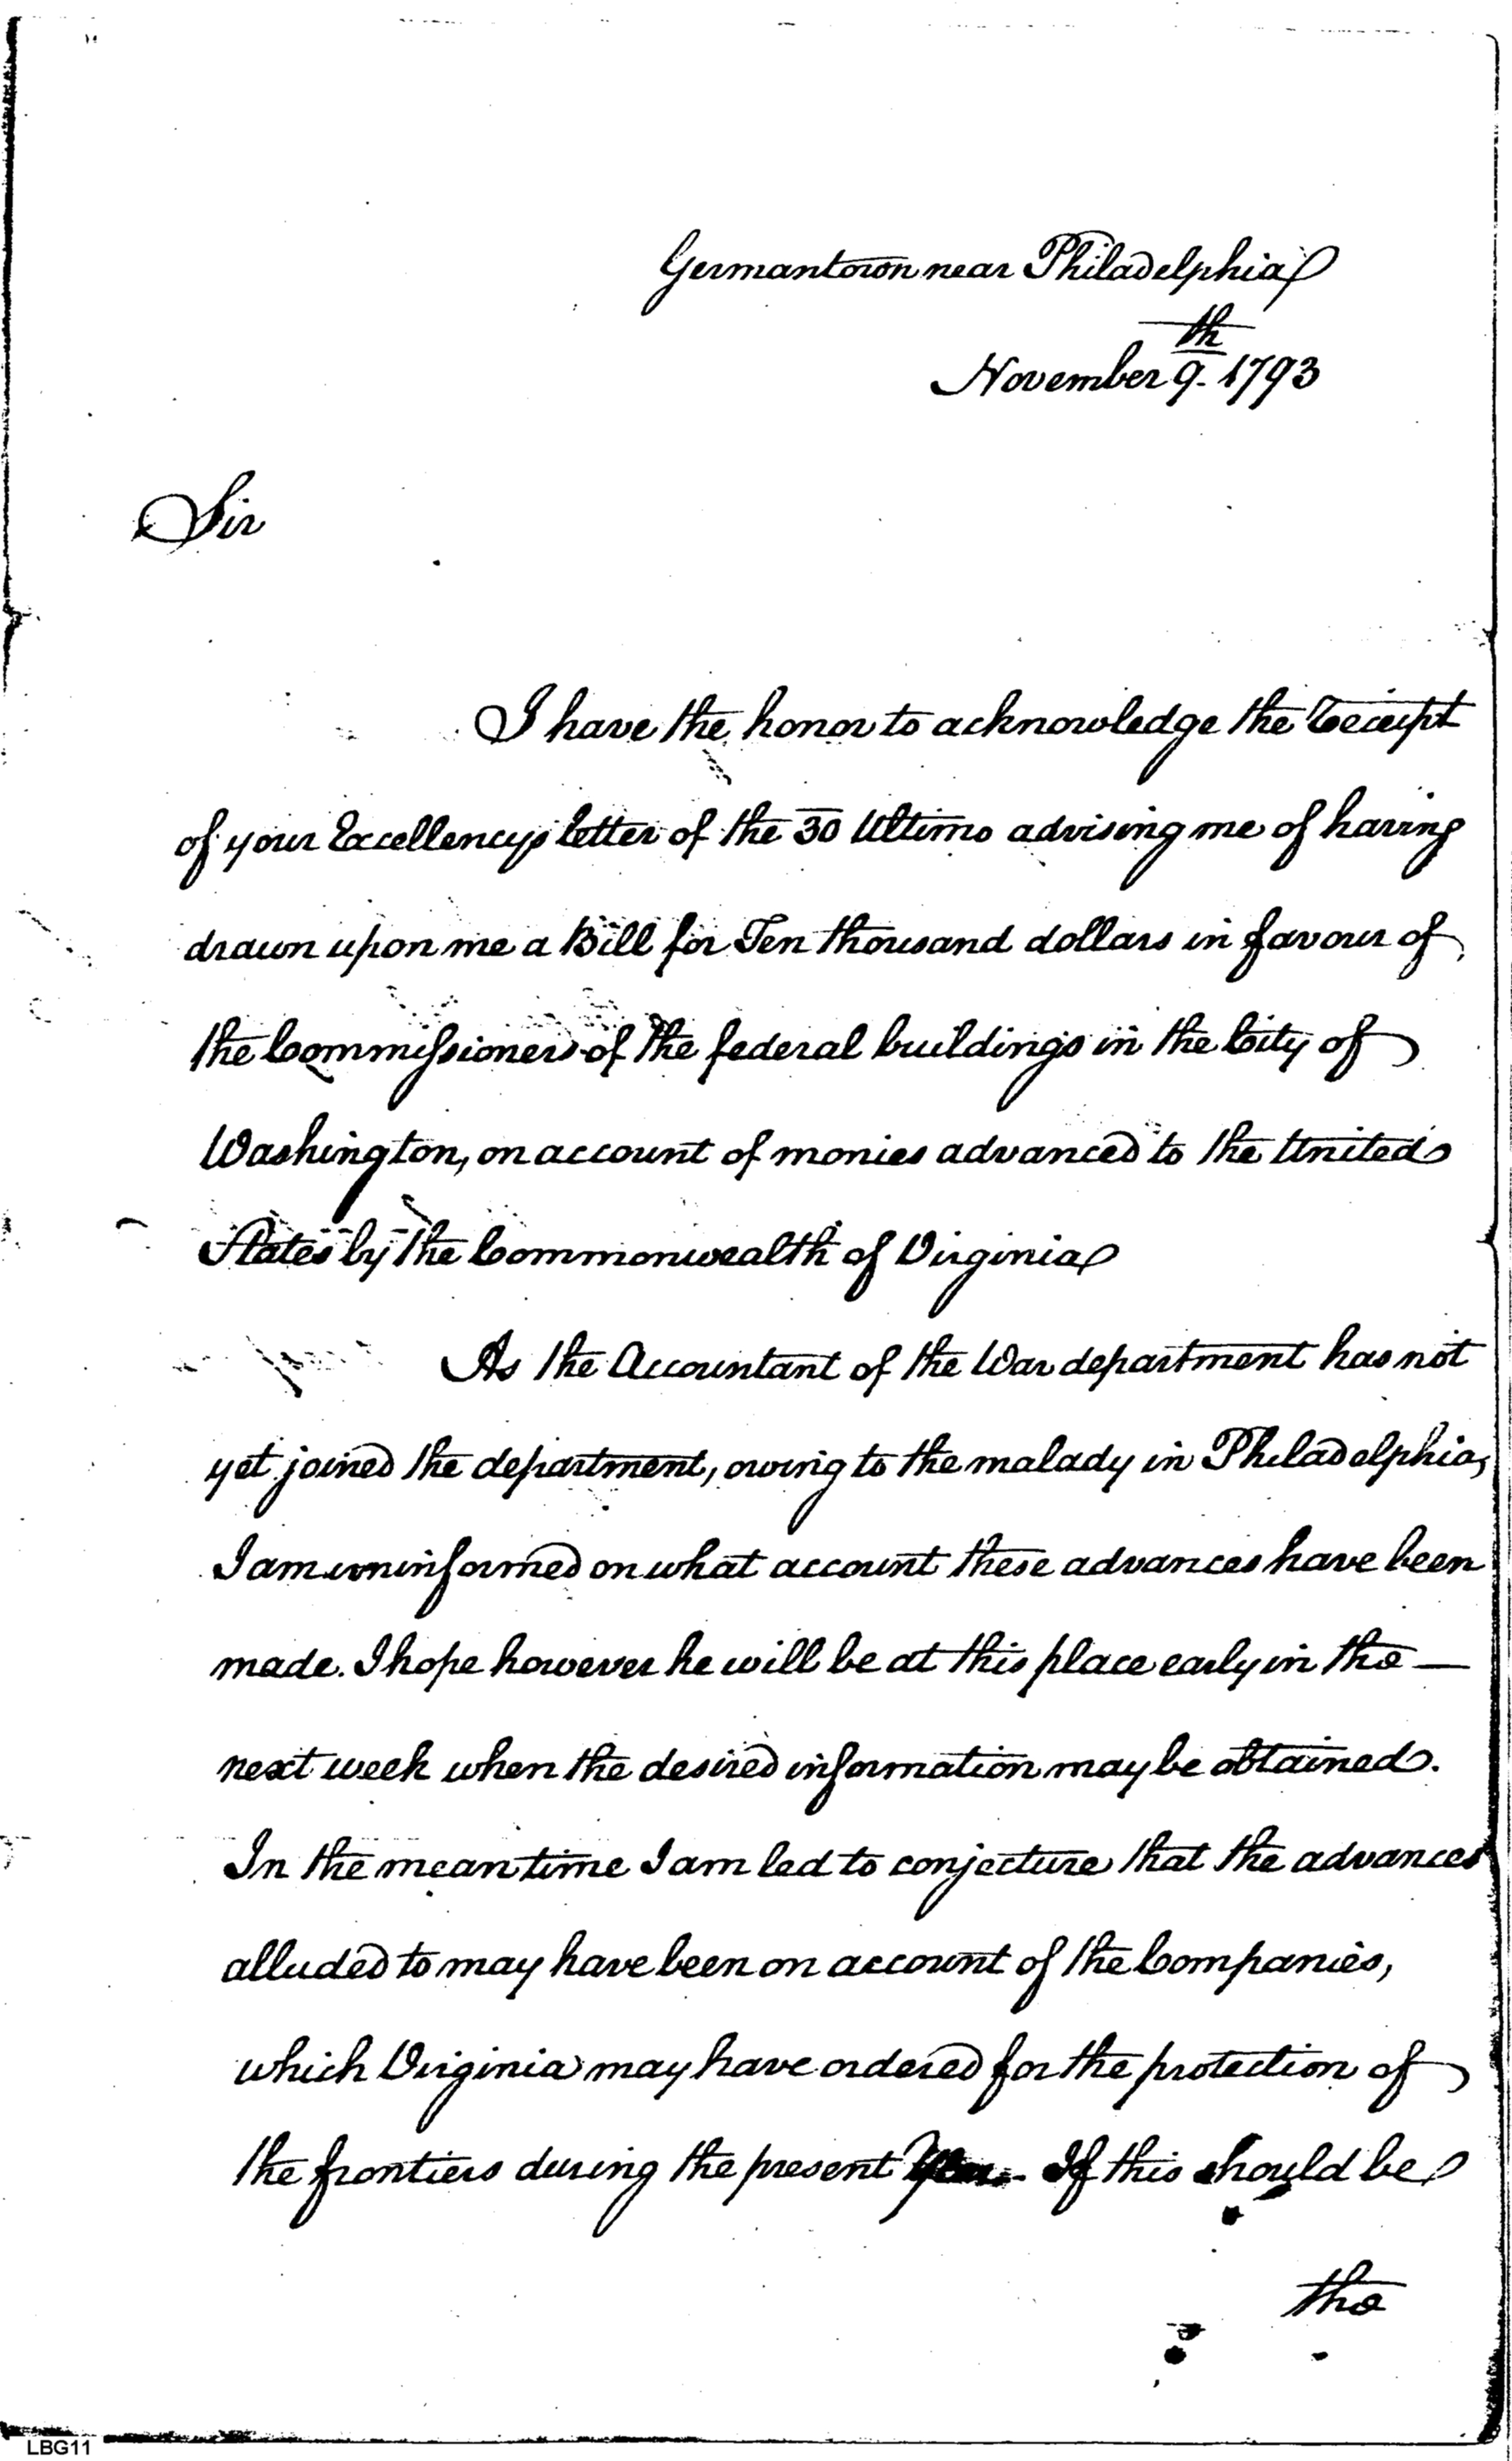 Germantown near Philadelphia
November 9th 1793
Sir
I have the honor to acknowledge the receipt
of your Excellencys letter of the 30 Ultimo advising me of having
drawn upon me a Bill for Ten thousand dollars in favour of
the Commissioners of the federal buildings in the City of
Washington, on account of monies advanced to the United
States by the Commonwealth of Virginia
As the Accountant of the War department has not
yet joined the department, owing to the malady in Philadelphia,
I am uninformed on what account these advances have been
made. I hope however he will be at this place early in the —
next week when the desired information may be obtained.
In the mean time I am led to conjecture that the advances
alluded to may have been on account of the Companies,
which Virginia may have ordered for the protection of
the frontiers during the present If this should be
the
LBG11